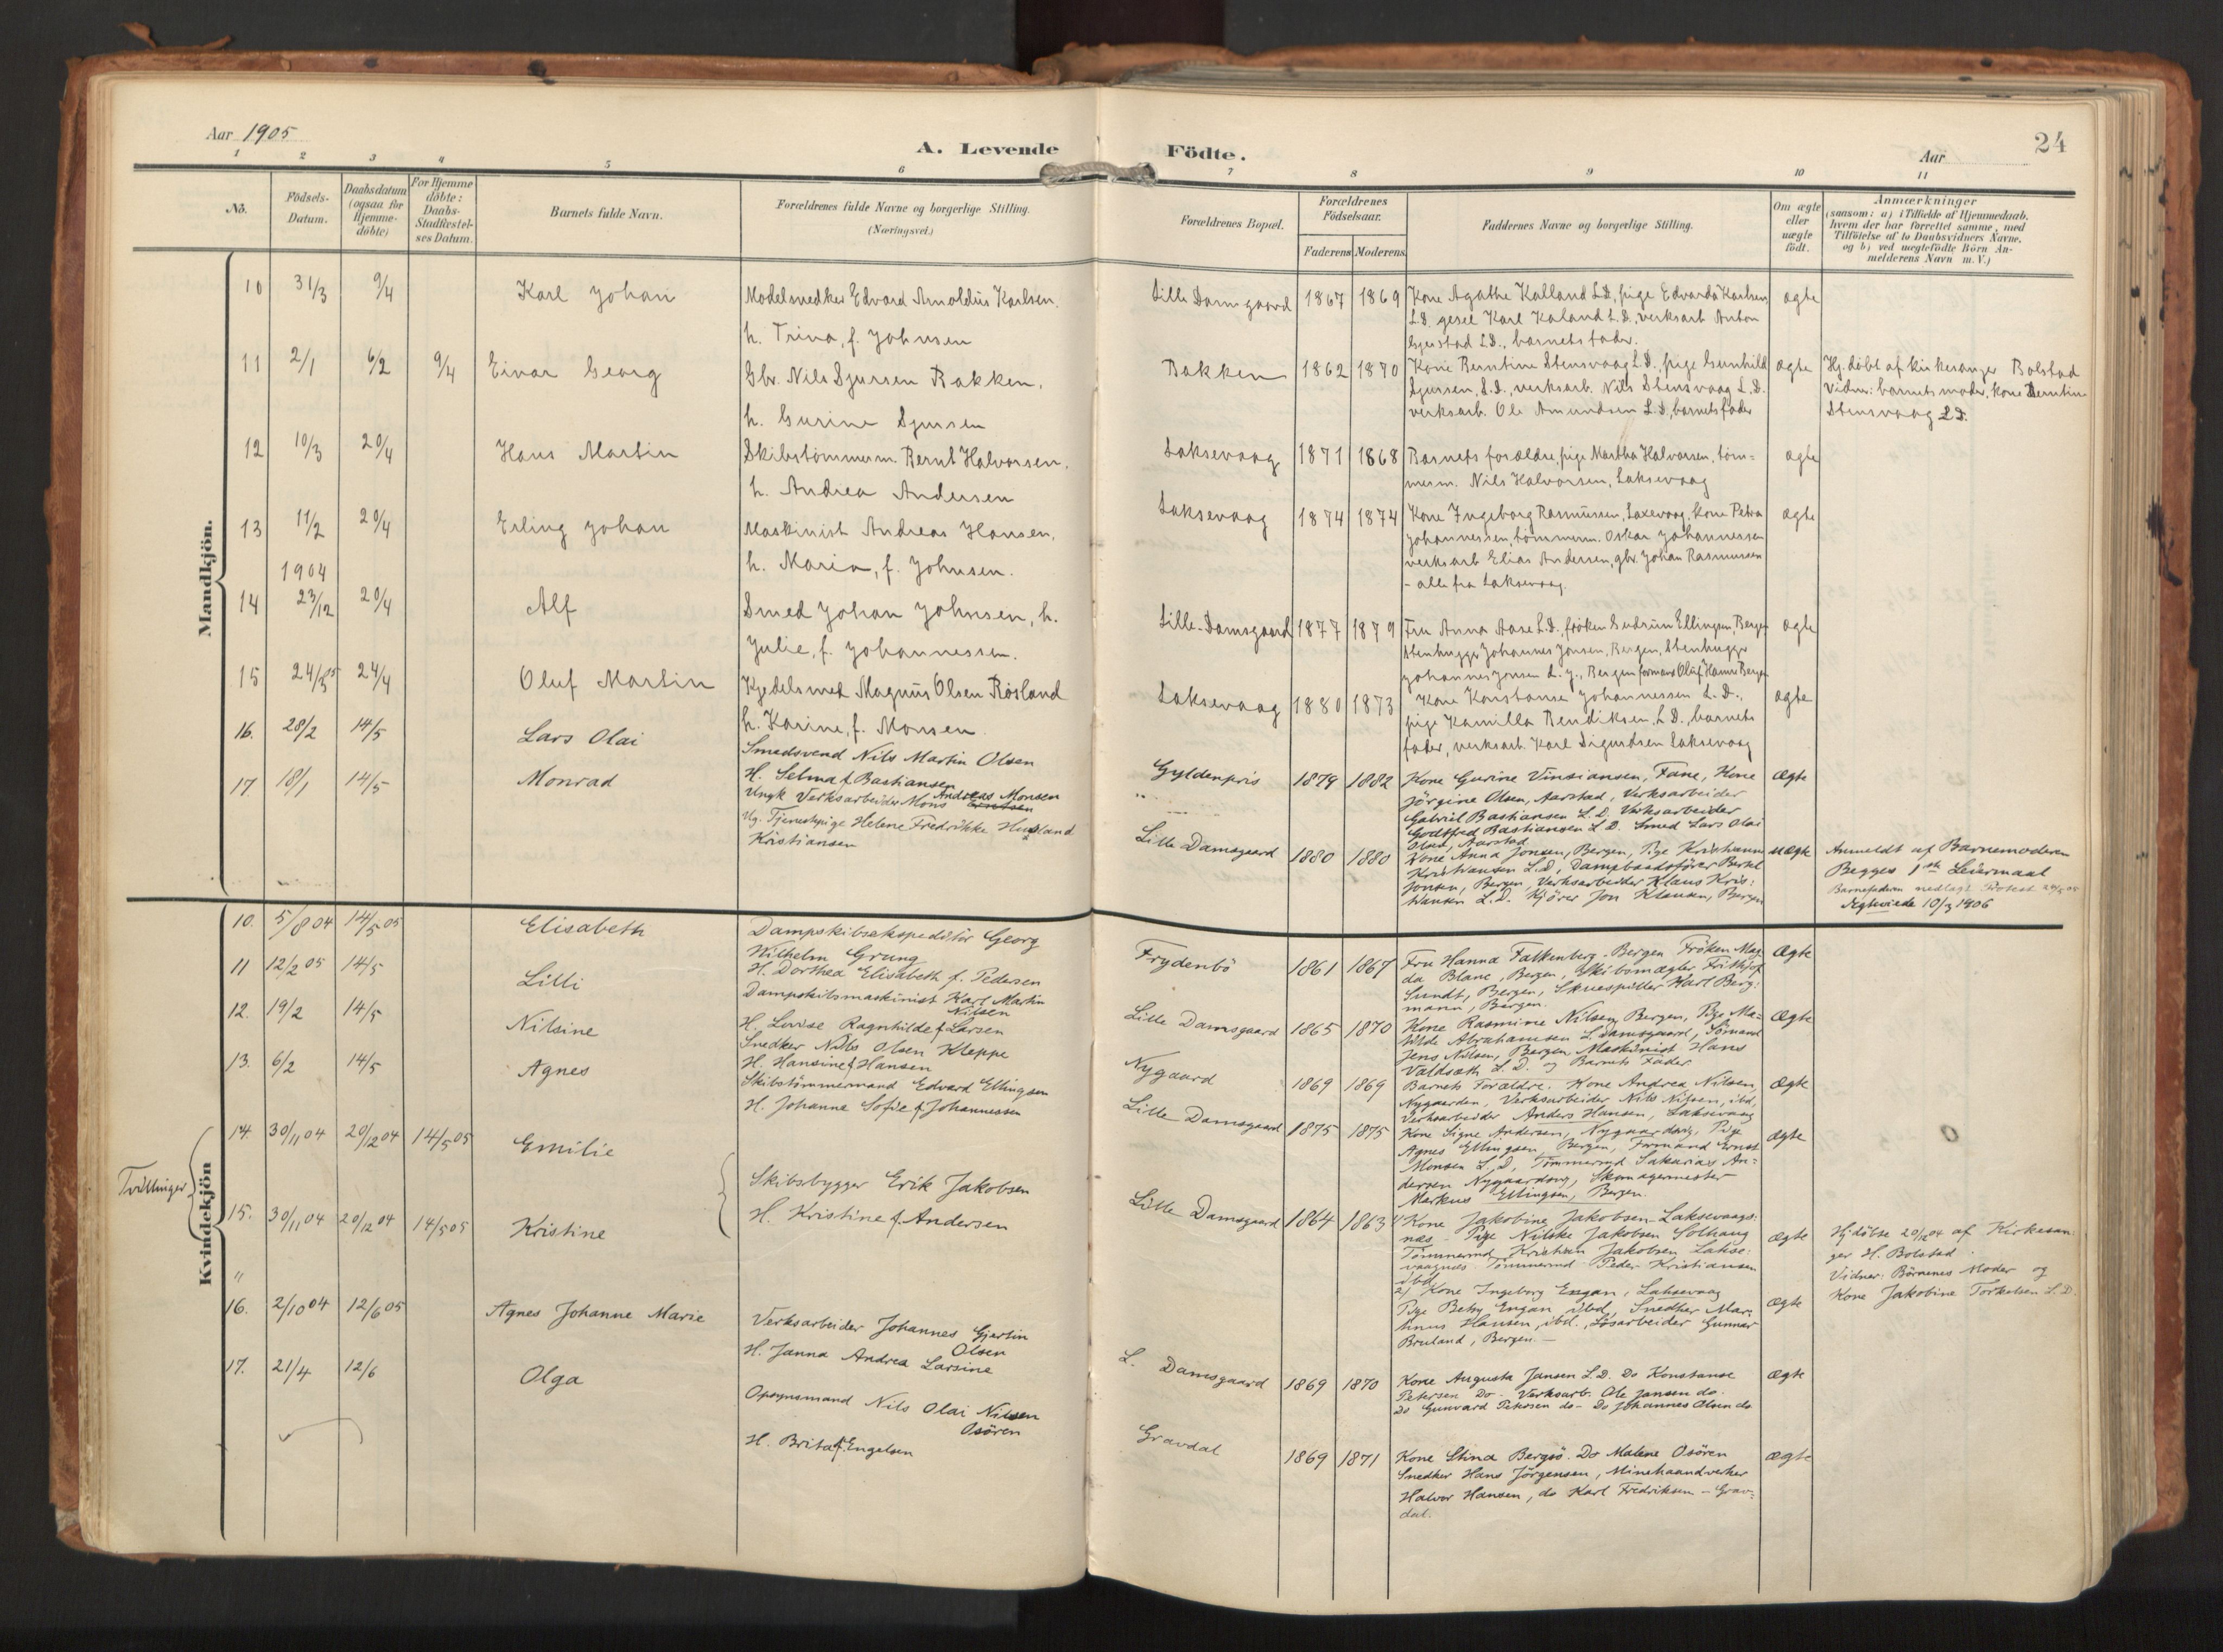 Aar 1905
A. Levende Födte.
Aar
24
1 2 3 4 5 6 7 8 9 10 11
No.
Födsels-Datum.
Daabsdatum (ogsaa for Hjemme-döbte)
For Hjemme döbte: Daabs-Stadfæstelses Datum.
Barnets fulde Navn.
Forældrenes fulde Navne og borgerlige Stilling.
(Næringsvei.)
Forældrenes Bopæl.
Forældrenes Födselsaar.
Faderens Moderens
Faddernes Navne og borgerlige Stilling.
Om ægte eller uægte födt.
Anmærkninger
(saasom: a) i Tilfælde af Hjemmedaab,
hvem der har forrettet samme, med
Tilföielse af to Daabsvidners Navne,
og b) ved uægtefödte Börn An-
melderens Navn m.V.)
Mandkjön.
10 31/3 9/4 Karl Johan
Modelsnedker Edvard Arnoldus Karlsen.
h. Trina, f. Johnsen
Lille Damsgaard 1867 1869
Kone Agathe Kalland L.D., pige Edvarda Karlsen
L.D. gesel Karl Kaland L.D., verksarb Anton
Gjerstad L.D., barnets fader.
ægte
11 2/1 6/2 9/4 Einar Georg
Gbr. Nils Sjursen Bakken.
h. Gurine Sjursen
Bakken 1862 1870
Kone Berntine Stensvaag L.D., pige Gunhild
Sjursen, L.D., verksarb. Nils Stensvaag L.D.
verksarb. Ole Amundsen L.D, barnets fader
ægte
Hj. döbt af kirkesanger Bolstad
Vidner: barnets moder, kone Berntine
Stensvaag L.D.
12 10/3 20/4 Hans Martin
Skibstömmerm. Bernt Halvorsen.
h. Andrea Andersen
Laksevaag 1871 1868
Barnets forældre, pige Martha Halvorsen, töm=
merm. Nils Halvorsen, Laksevaag
ægte
13 11/2 20/4 Erling Johan
Maskinist Andreas Hansen.
h. Maria, f. Johnsen.
Laksevaag 1874 1874
Kone Ingeborg Rasmussen, Laxevaag, kone Petra
Johannessen, tömmerm. Oskar Johannessen
verksarb Elias Andersen, gbr. Johan Rasmussen
- alle fra Laksevaag.
ægte
1904
14 23/12 20/4 Alf
Smed Johan Johnsen, h.
Julie, f. Johannessen.
Lille-Damsgaard 1877 1879
Fru Anna Aase L.D., fröken Gudrun Ellingsen, Bergen
Stenhugger Johannes Jonsen, Bergen, Stenhugger
Johannes Jonsen d. y., Bergen formand Oluf Hamre Bergen
ægte
15 24/3 05 24/4 Oluf Martin
Kjedelsmed Magnus Olsen Røsland
h. Karine, f. Monsen
Laksevaag 1880 1873
Kone Konstanse Johannessen L.D.,
pige Kamilla Bendiksen, L.D., barnets
fader, verksarb. Karl Sigurdsen Laksevaag
ægte
16. 28/2 14/5 Lars Olai
Smedsvend Nils Martin Olsen
H. Selma f. Bastiansen
Gyldenpris 1879 1882
Kone Gurine Vinsiansen, Fane, Kone
Jörgine Olsen, Aarstad, Verksarbeider
Gabriel Bastiansen L.D. Verksarbeider
Godtfred Bastiansen L.D. Smed Lars Olai
Olsen, Aarstad
ægte
17. 18/1 14/5 Monrad
Ungk Verksarbeider Mons Andreas Monsen
Ug. Tjenestepige Helene Fredrikke Husland
Kristiansen
Lille Damsgaard 1880 1880
Kone Anna Jonsen, Bergen, Pige Kristianne
Kristiansen L.D, Dampbaadsförer Bertel
Jonsen, Bergen, Verksarbeider Klaus Kris:
tiansen L.D. Kjörer Jon Klausen, Bergen
uægte
Anmeldt af Barnemoderen
Begges 1ste Leiermaal
Barnefaderen nedlagt Protest 20/5 05
Ægteviede 10/3 1906
Kvindekjön
10. 5/8 04 14/5 05 Elisabeth
Dampskibsekspeditör Georg
Wilhelm Grung
H. Dorthea Elisabeth f. Pedersen
Frydenbö 1861 1867
Fru Hanna Falkenberg, Bergen Fröken Mag
da Blane, Bergen, Skibsmægler Frithjof
Sundt, Bergen, Skuespiller Karl Berg:
mann, Bergen.
Ægte
11 12/2 05 14/5 Lilli
Dampskibsmaskinist Karl Martin
Nilsen
H. Lovise Ragnhilde f. Larsen
Lille Damsgaard 1865 1870
Kone Rasmine Nilsen, Bergen, Pige Ma=
tilde Abrahamsen L. Damsgaard, Sömand
Jens Nilsen, Bergen, Maskinist Hans
Valdsæth L.D. og Barnets Fader
Ægte
12. 19/2 14/5 Nilsine
Snedker Nils Olsen Kleppe
H. Hansine f Hansen
Nygaard 1869 1869
Barnets Forældre. Kone Andrea Nilsen,
Nygaarden, Verksarbeider Nils Nilsen, ibd,
Verksarbeider Anders Hansen, Laksevaag
Ægte
13. 6/2 14/5 Agnes
Skibstömmermand Edvard Ellingsen
H. Johanna Sofie f. Johannessen
Lille Damsgaard 1875 1875
Kone Signe Andersen, Nygaardsvg, Pige
Agnes Ellingsen Bergen, Formand Ernst
Monsen L.D, Tömmermd Sakarias An=
dersen Nygaardsvg, Skomagermester
Markus Ellingsen, Bergen.
Ægte
Tvillinger
14. 30/11 04 20/12 04 14/5 05 Emilie
15. 30/11 04 20/12 04 14/5 05 Kristine
Skibsbygger Erik Jakobsen
H. Kristine f. Andersen
Lille Damsgaard 1864 1863
1) Kone Jakobine Jakobsen Laksevaags:
næs - Pige Nilske Jakobsen Solhaug
Tömmermd Kristian Jakobsen Lakse:
vaagnæs Tömmermd Peder Kristiansen
ibd
2) Kone Ingeborg Engan, Laksevaag
Pige Betsy Engan, ibid, Snedker Mar=
tinus Hansen, ibd., Lösarbeider Gunnar
Bruland, Bergen. —
ægte
Ægte
Hjdöbte 20/12 04 af Kirkesan:
ger H. Bolstad.
Vidner: Börnenes Moder og
Kone Jakobine Torkelsen L.D.
"
16. 2/10 04 12/6 05 Agnes Johanne Marie
Verksarbeider Johannes Gjertin
Olsen
H. Janna Andrea Larsine
L. Damsgaard 1869 1870
Kone Augusta Jansen L.D. Do Konstanse
Petersen Do - Verksarb. Ole Jansen do.
Do Gunvard Petersen do - Do Johannes Olsen do
Ægte
17. 21/4 12/6 Olga
Opsynsmand Nils Olai Nilsen
Osören
H. Brita f. Engelsen
Gravdal 1869 1871
Kone Stina Bergsö. Do Malene Osören
Snedker Hans Jörgensen, Minehaandverker
Halvor Hansen, do Karl Fredriksen - Grav=
dal.
Ægte